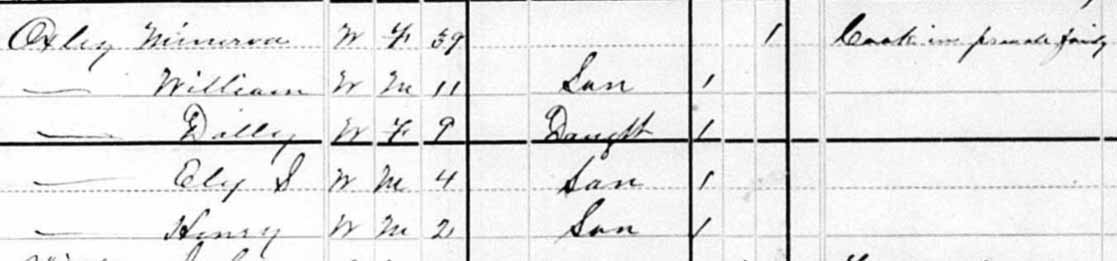 Oxley Minerva W F 39 1 Cook in private family
— William W M 11 Son 1
— Dolly W F 9 Daught 1
— Ely S W M 4 Son 1
— Henry W M 2 Son 1